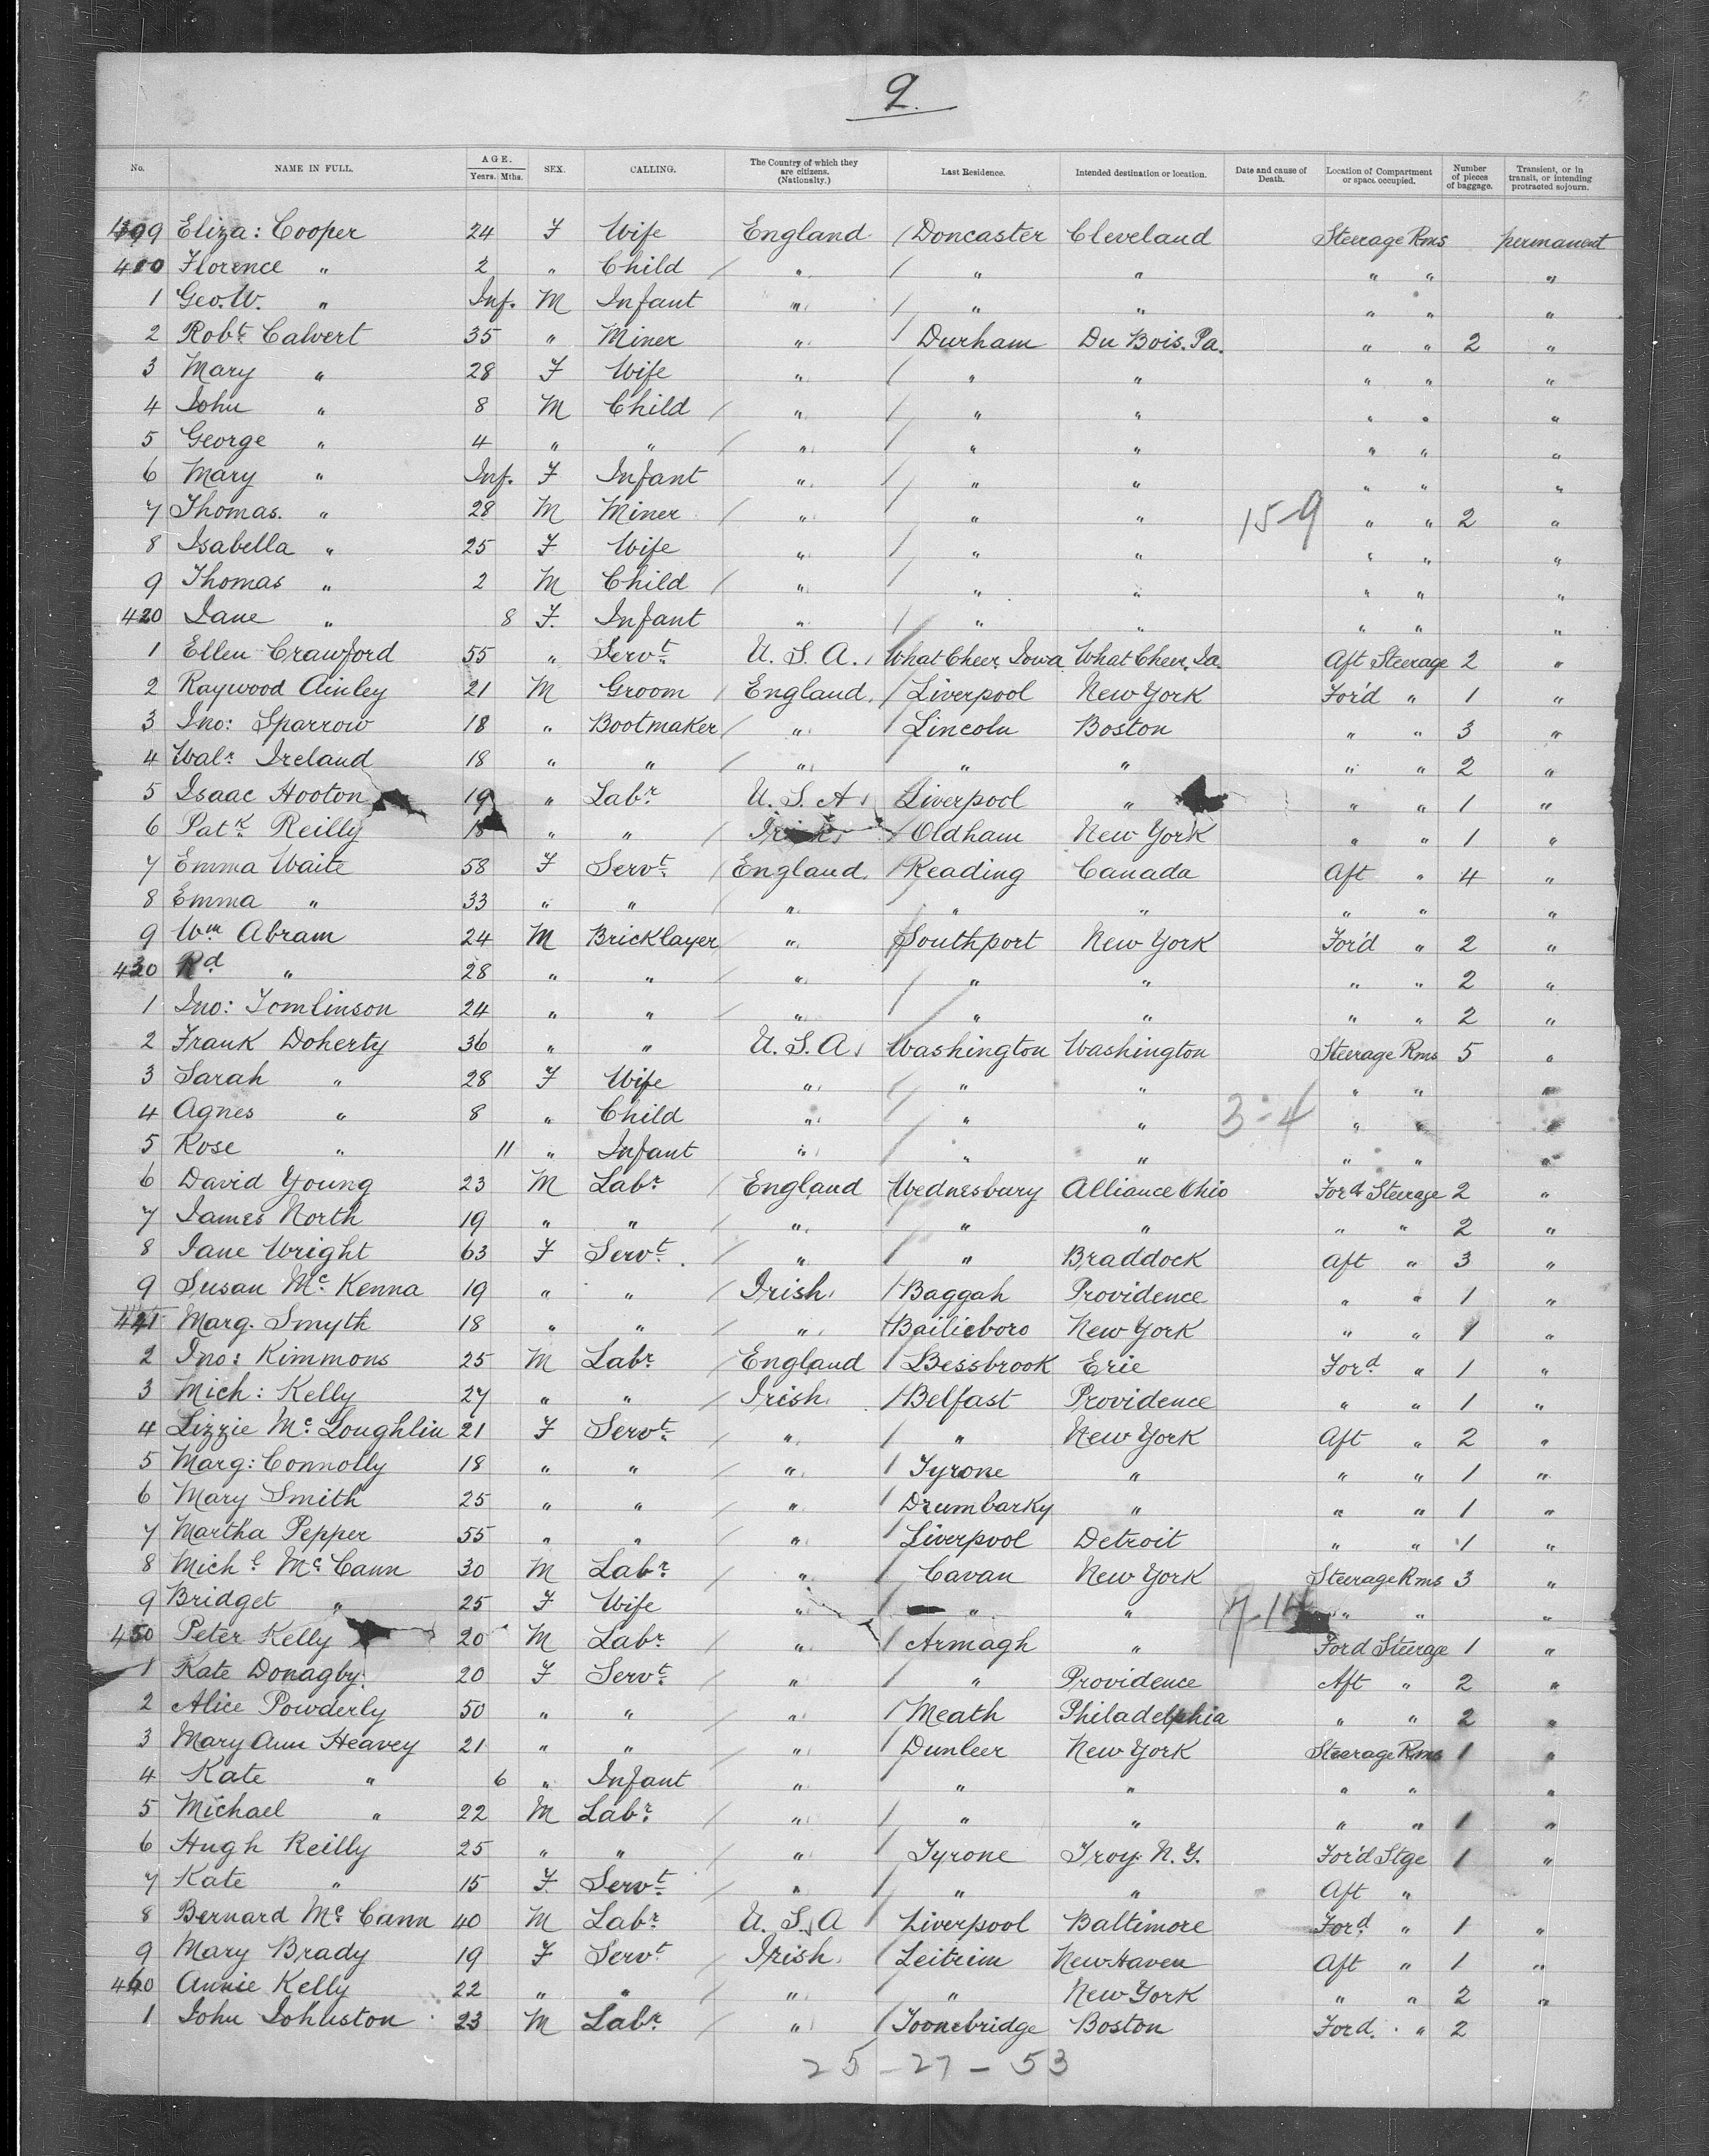 9.
No. NAME IN FULL. AGE. Years. Mths. SEX. CALLING. The Country of which they are citizens. (Nationality.) Last Residence. Intended destination or location. Date and cause of Death. Location of Compartment or space occupied. Number of pieces of baggage. Transient, or in transit, or intending protracted sojourn.
409 Eliza: Cooper 24 F Wife England / Doncaster Cleveland Steerage Rms permanent
410 Florence " 2 " Child / " / " " " " "
1 Geo. W. " Inf. M Infant " / " " " " "
2 Robt Calvert 35 " Miner " / Durham Du Bois. Pa. " " 2 "
3 Mary " 28 F Wife " / " " " " "
4 John " 8 M Child / " / " " " " "
5 George " 4 " " / " / " " " " "
6 Mary " Inf. F Infant " / " " " " "
7 Thomas. " 28 M Miner / " / " " 15-9 " " 2 "
8 Isabella " 25 F Wife " / " " " " "
9 Thomas " 2 M Child / " / " " " " "
420 Jane " 8 F. Infant " / " " " " "
1 Ellen Crawford 55 " Servt U. S. A. What Cheer Iowa What Cheer, Ia. Aft Steerage 2 "
2 Raywood Ainley 21 M Groom / England / Liverpool New York For'd " 1 "
3 Jno: Sparrow 18 " Bootmaker / " / Lincoln Boston " " 3 "
4 Walr Ireland 18 " " / " / " " " " 2 "
5 Isaac Hooton 19 " Labr U. S. A Liverpool " " " 1 "
6 Patk Reilly 18 " " / Irish / Oldham New York " " 1 "
7 Emma Waite 58 F Servt / England / Reading Canada Aft " 4 "
8 Emma " 33 " " / " / " " " " "
9 Wm Abram 24 M Bricklayer / " / Southport New York For'd " 2 "
430 Rd " 28 " " / " / " " " " 2 "
1 Jno: Tomlinson 24 " " / " / " " " " 2 "
2 Frank Doherty 36 " " U. S. A. Washington Washington Steerage Rms 5 "
3 Sarah " 28 F Wife " / " " " " "
4 Agnes " 8 " Child " / " " 3-4 " " "
5 Rose " 11 " Infant " / " " " " "
6 David Young 23 M Labr / England Wednesbury Alliance Ohio Ford Steerage 2 "
7 James North 19 " " / " " " " " 2 "
8 Jane Wright 63 F Servt / " / " Braddock Aft " 3 "
9 Susan Mc Kenna 19 " " / Irish / Baggah Providence " " 1 "
441 Marg. Smyth 18 " " / " / Bailieboro New York " " 1 "
2 Jno: Kimmons 25 M Labr / England / Bessbrook Erie Ford " 1 "
3 Mich: Kelly 27 " " / Irish / Belfast Providence " " 1 "
4 Lizzie Mc Loughlin 21 F Servt / " / " New York Aft " 2 "
5 Marg: Connolly 18 " " / " / Tyrone " " " 1 "
6 Mary Smith 25 " " / " / Drumbarky " " " 1 "
7 Martha Pepper 55 " " / " / Liverpool Detroit " " 1 "
8 Michl Mc Cann 30 M Labr " / Cavan New York Steerage Rms 3 "
9 Bridget " 25 F Wife " / " " " " "
450 Peter Kelly 20 M Labr / " / Armagh " Ford Steerage 1 "
1 Kate Donagby. 20 F Servt / " / " Providence Aft " 2 "
2 Alice Powderly 50 " " / " / Meath Philadelphia " " 2 "
3 Mary Ann Heavey 21 " " / " / Dunleer New York Steerage Rms 1 "
4 Kate " 6 " Infant " / " " " " "
5 Michael " 22 M Labr / " / " " " " 1 "
6 Hugh Reilly 25 " " / " / Tyrone Troy. N. Y. For'd Stge 1 "
7 Kate " 15 F. Servt / " / " " Aft "
8 Bernard Mc Cann 40 M Labr U. S. A / Liverpool Baltimore Ford " 1 "
9 Mary Brady 19 F Servt / Irish / Leitrim New Haven Aft " 1 "
460 Annie Kelly 22 " " / " / " New York " " 2 "
1 John Johnston 23 M Labr / " / Toonebridge Boston Ford. " 2
25 - 27 - 53